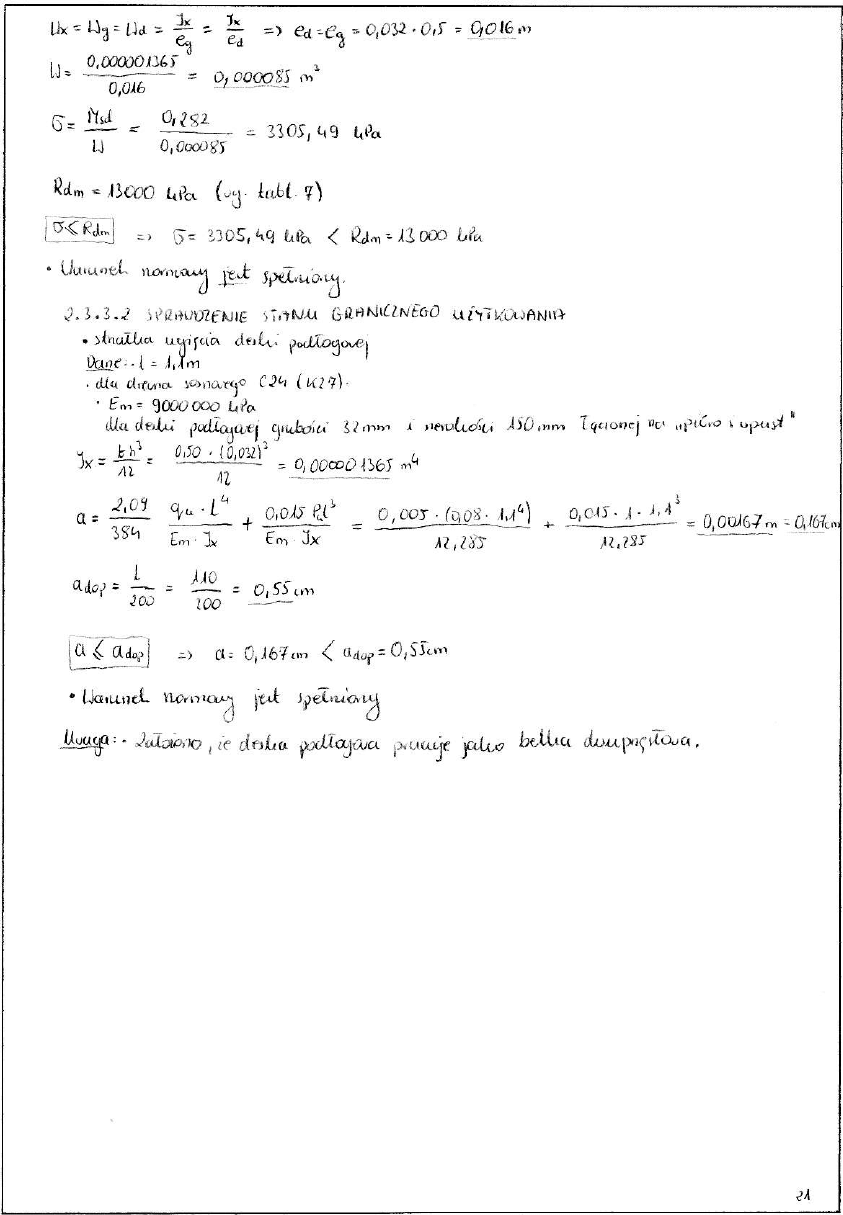 Wx = Wg = Wd = Jx/eg = Jx/ed => ed = eg = 0,032 · 0,5 = 0,016 m
W = 0,000001365/0,016 = 0,000085 m³
σ = Msd/W = 0,282/0,000085 = 3305,49 kPa
Rdm = 13000 kPa (wg. tabl. 7)
σ ≤ Rdm => σ = 3305,49 kPa < Rdm = 13 000 kPa
• Warunek normowy jest spełniony.
2.3.3.2 SPRAWDZENIE STANU GRANICZNEGO UŻYTKOWANIA
• strzałka ugięcia deski podłogowej
Dane: · l = 1,1m
· dla drewna sosnowego C24 (K27).
· Em = 9000 000 kPa
dla deski podłogowej grubości 32 mm i szerokości 150 mm łączonej na "pióro i wpust"
Jx = bh³/12 = 0,50 · (0,032)³/12 = 0,000001365 m⁴
a = 2,09/384 qk · L⁴/Em · Jx + 0,015 Pl³/Em · Jx = 0,005 · (0,08 · 1,1⁴)/12,285 + 0,015 · 1 · 1,1³/12,285 = 0,00167 m = 0,167cm
adop = L/200 = 110/200 = 0,55 cm
a ≤ adop => a = 0,167 cm < adop = 0,55cm
• Warunek normowy jest spełniony
Uwaga: · Założono, że deska podłogowa pracuje jako belka dwuprzęsłowa.
21